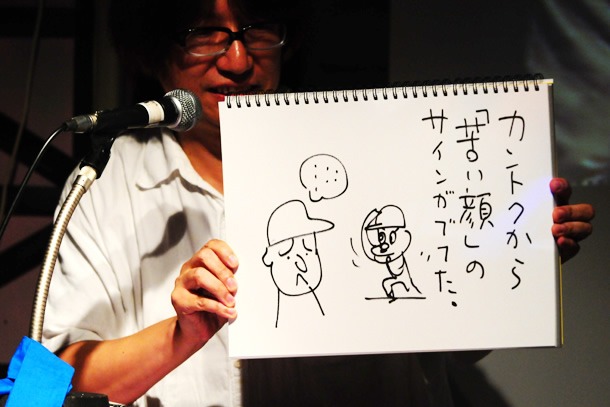 カントクから
「苦い顔」の
サインがでてた。